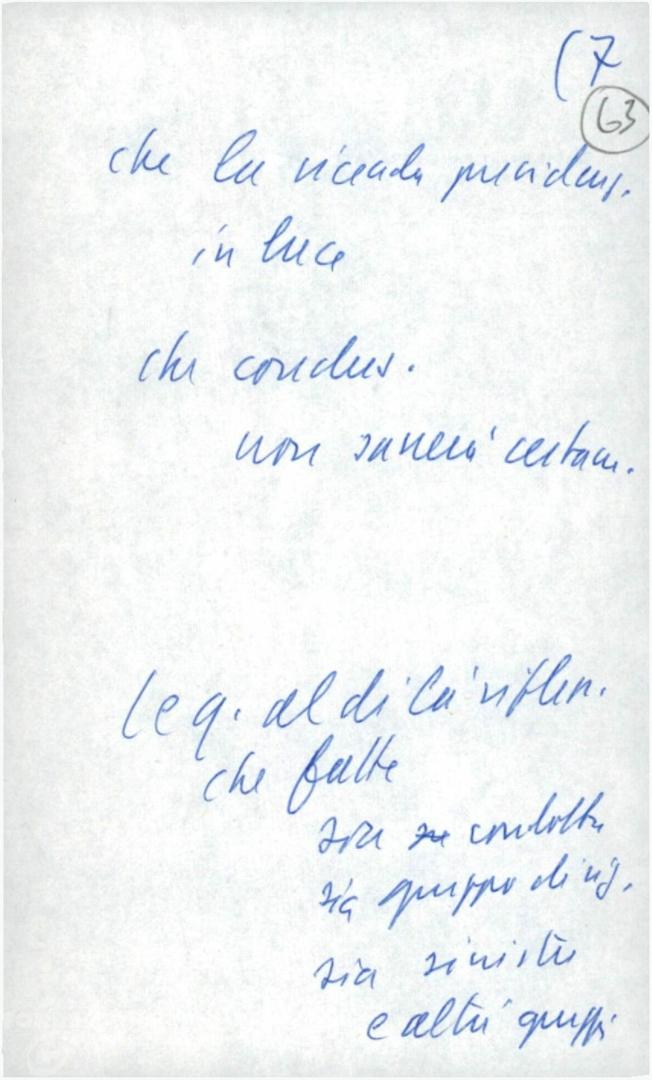 (7
63
che la vicenda presidenz.
in luce
che conclus.
non sanerà certam.
(e q. al di là riflen.
che fatte
sia su condotta
sia gruppo dirig.
sia sinistra
e altri gruppi